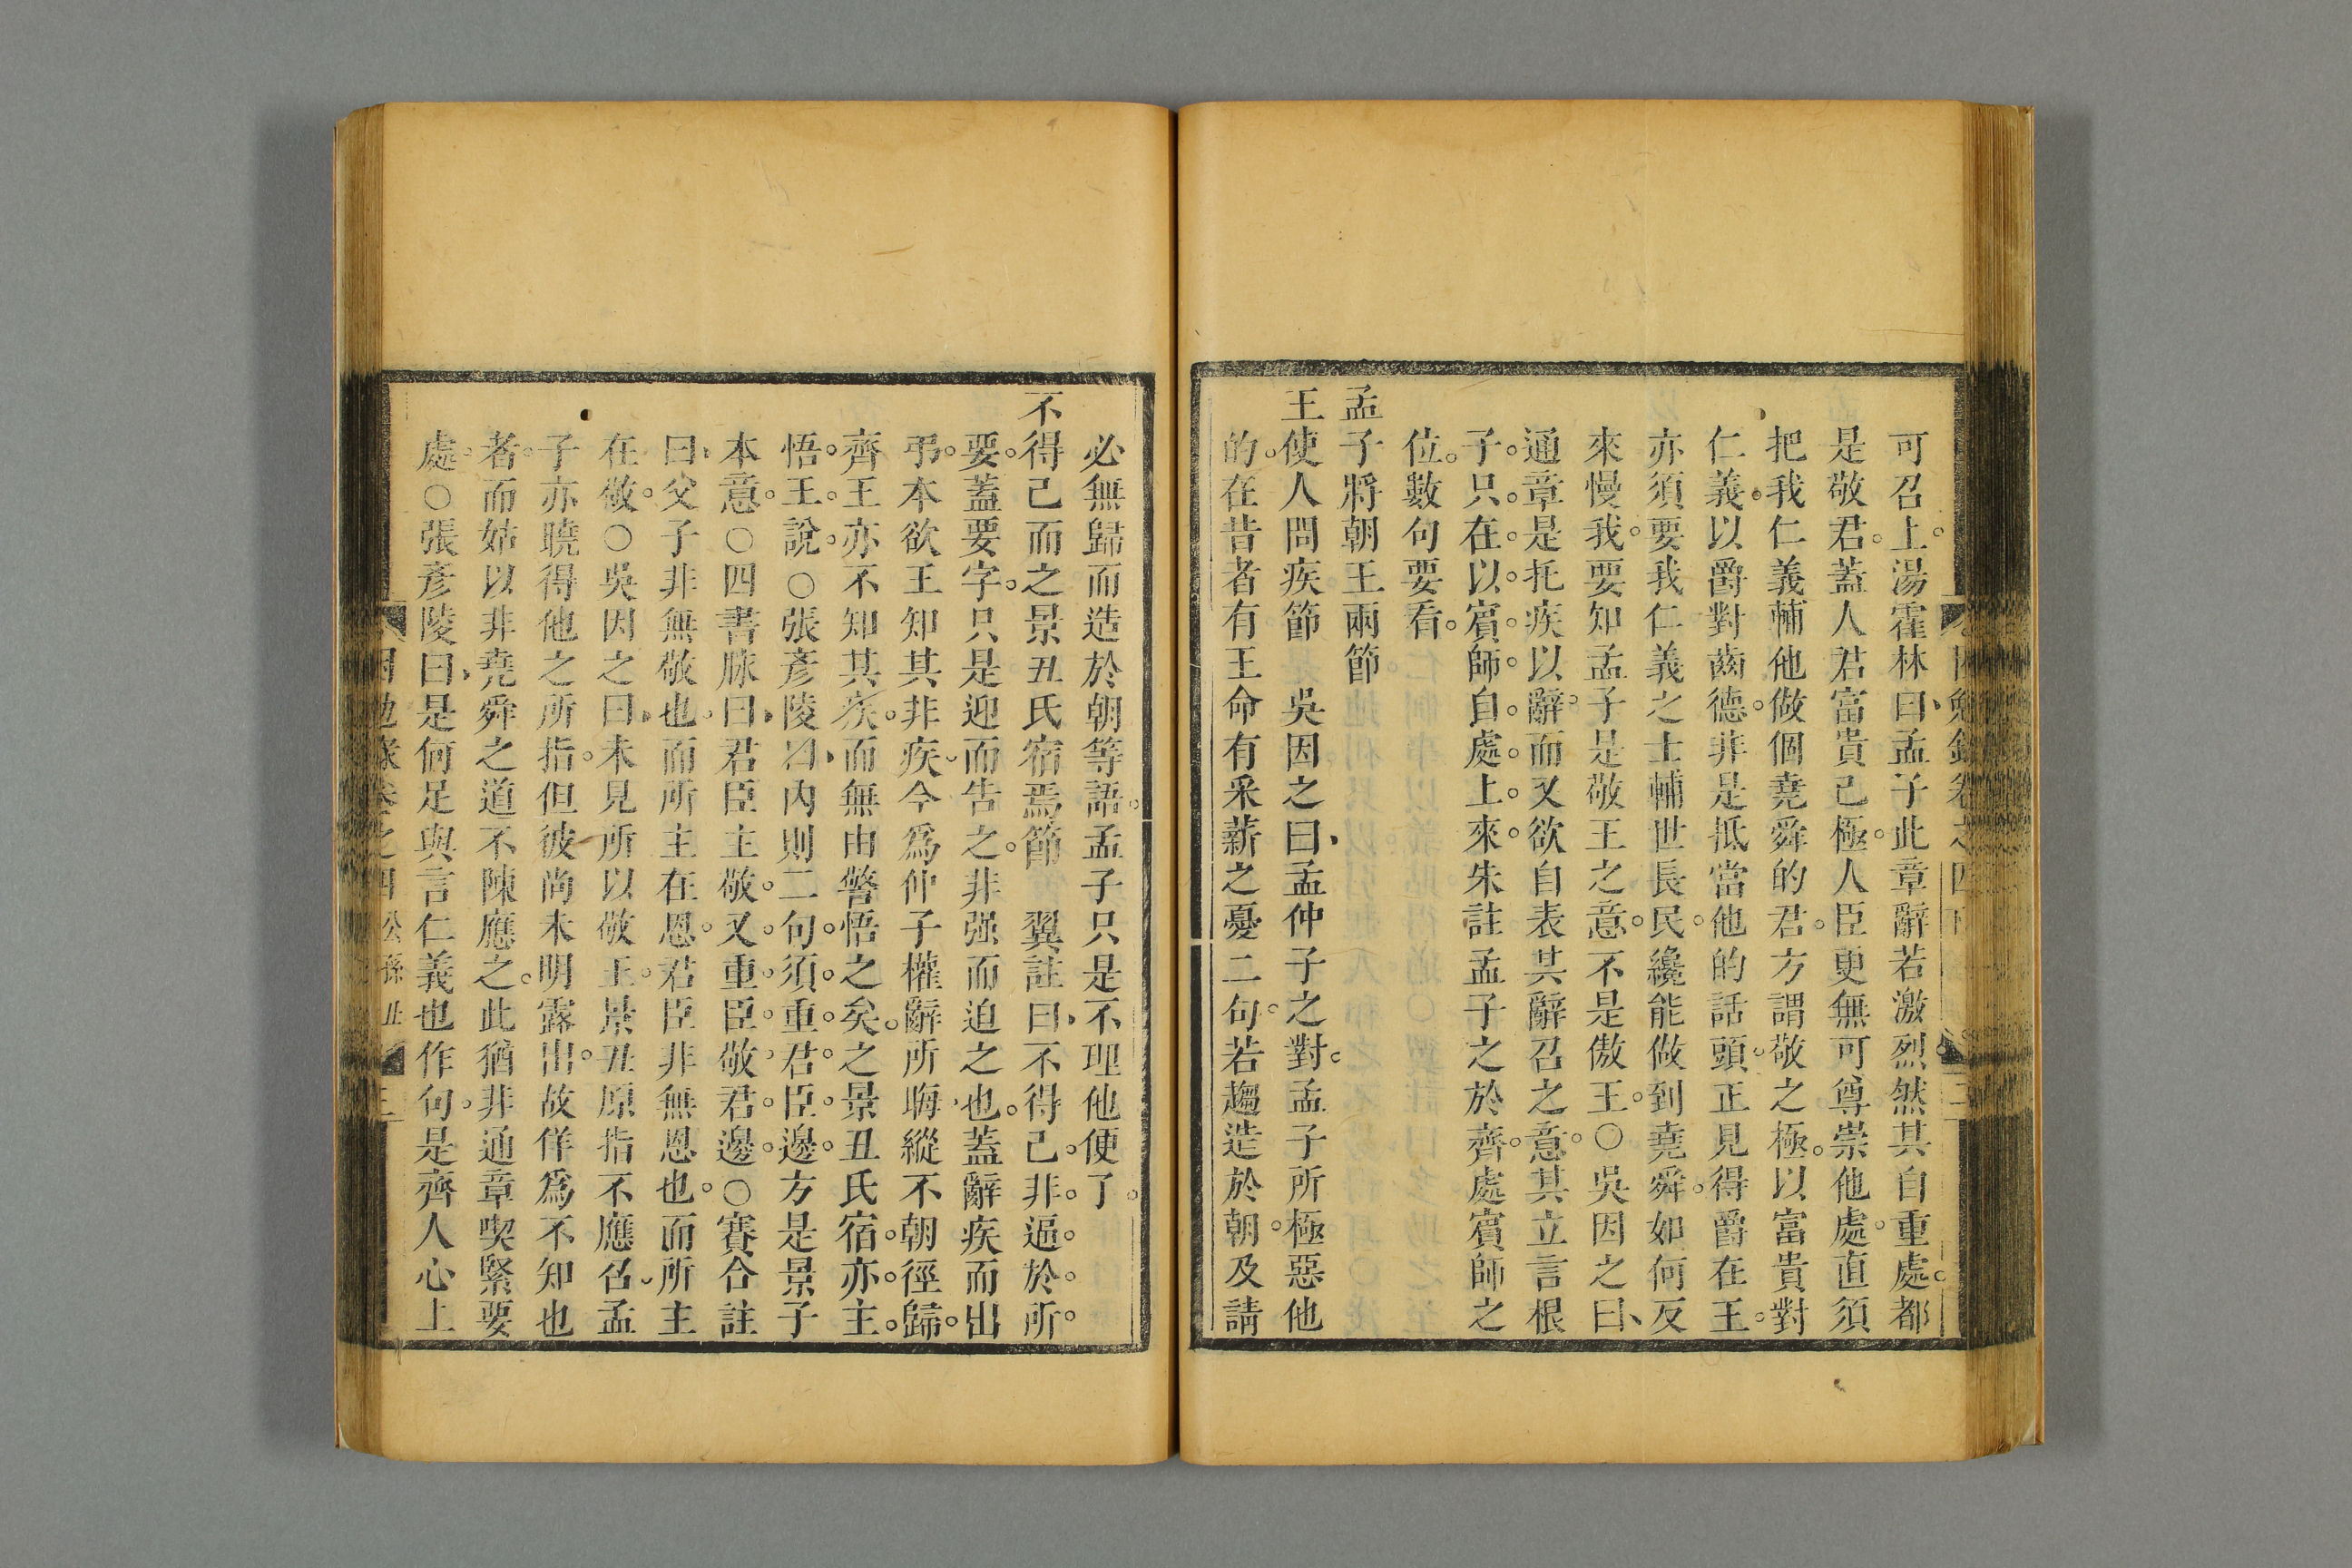 可召上湯霍林曰孟子此章辭若激烈然其自重處都
是敬君蓋人君富貴已極人臣更無可尊崇他處直須
把我仁義輔他做個堯舜的君方謂敬之極以富貴對
仁義以爵對齒德非是抵當他的話頭正見得爵在王
亦須要我仁義之士輔世長民纔能做到堯舜如何反
來慢我要知孟子是敬王之意不是傲王○吳因之曰
通章是托疾以辭而又欲自表其辭召之意其立言根
子只在以賓師自處上來朱註孟子之於齊處賓師之
位數句要看
孟子將朝王兩節
王使人問疾節　吳因之曰孟仲子之對孟子所極惡他
的在昔者有王命有采薪之憂二句若趨造於朝及請
必無歸而造於朝等語孟子只是不理他便了
不得已而之景丑氏宿焉節　翼註曰不得已非逼於所
要蓋要字只是迎而告之非强而迫之也蓋辭疾而出
弔本欲王知其非疾今爲仲子權辭所晦縱不朝徑歸
齊王亦不知其疾而無由警悟之矣之景丑氏宿亦主
悟王說○張彥陵曰內則二句須重君臣邊方是景子
本意○四書脉曰君臣主敬又重臣敬君邊○賽合註
曰父子非無敬也而所主在恩君臣非無恩也而所主
在敬○吳因之曰未見所以敬王景丑原指不應召孟
子亦曉得他之所指但彼尚未明露出故佯爲不知也
者而姑以非堯舜之道不陳應之此猶非通章喫緊要
處○張彥陵曰是何足與言仁義也作句是齊人心上